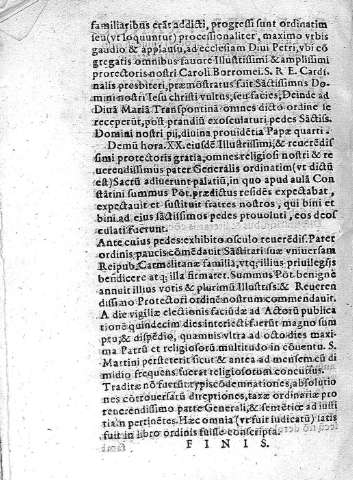 familiaribus erāt addicti, progressi sunt ordinatim
seu (vt loquuntur) processionaliter, maximo vrbis
gaudio & applausu, ad ecclesiam Diui Petri, vbi cō
gregatis omnibus fauore Illustissimi & amplissimi
protectoris nostri Caroli Borromei. S. R. E. Cardi-
nalis presbiteri, præmonstratus fuit Sāctissimus Do
mini nostri Iesu christi vultus, seu facies, Deinde ad
Diuā Mariā Transpontina omnes dicto ordine se
receperūt, post prandiū exosculaturi pedes Sāctiss.
Domini nostri pij, diuina prouidētia Papæ quarti.
Demū hora. XX. eiusdē Illustrissimi, & reuerēdis
simi protectoris gratia, omnes religiosi nostri & re
uerendissimus pater Generalis ordinatim (vt dictū
est) Sacrū adiuerunt palatiū, in quo apud aulā Con
stātini summus Pōt. prædictus resiđēs expectabat,
expectauit et sustituit fratres nostros, qui bini et
bini ad eius sāctissimos pedes prouoluti, eos deos
culati fuerunt.
Ante cuius pedes exhibito osculo reuerēdis. Pater
ordinis paucis cōmēdauit Sāctitati suæ vniuersam
Reipub. Carmelitanæ familiā, vtq; illius priuilegijs
bendicere atq; illa firmaret. Summus Pōt. benigne
annuit illius votis & plurimū Illustriss. & Reueren
dissimo Protectori ordinē nostrum commendauit.
A die vigiliæ electionis faciūdæ ad Actorū publica
tionē quindecim dies interiecti fuerūt magno sum
ptu, & dispēdio, quamuis vltra ad octo dies maxi
ma Patrū et religiosorū multitudo in cōuentu. S.
Martini perstiterit sicut & antea ad mensem cū di
midio frequens fuerat religiosorum concursus.
Traditæ nō fuerūt typis cōdemnationes, absolutio
nes cōtrouersiarū direptiones, taxæ ordinariæ pro
reuerendissimo patre Generali, & semētiæ ad iusti
tiam pertinētes. Hæc omnia (vt fuit iudicatū) satis
fuit in libro ordinis fuisse conscripta.
F I N I S.